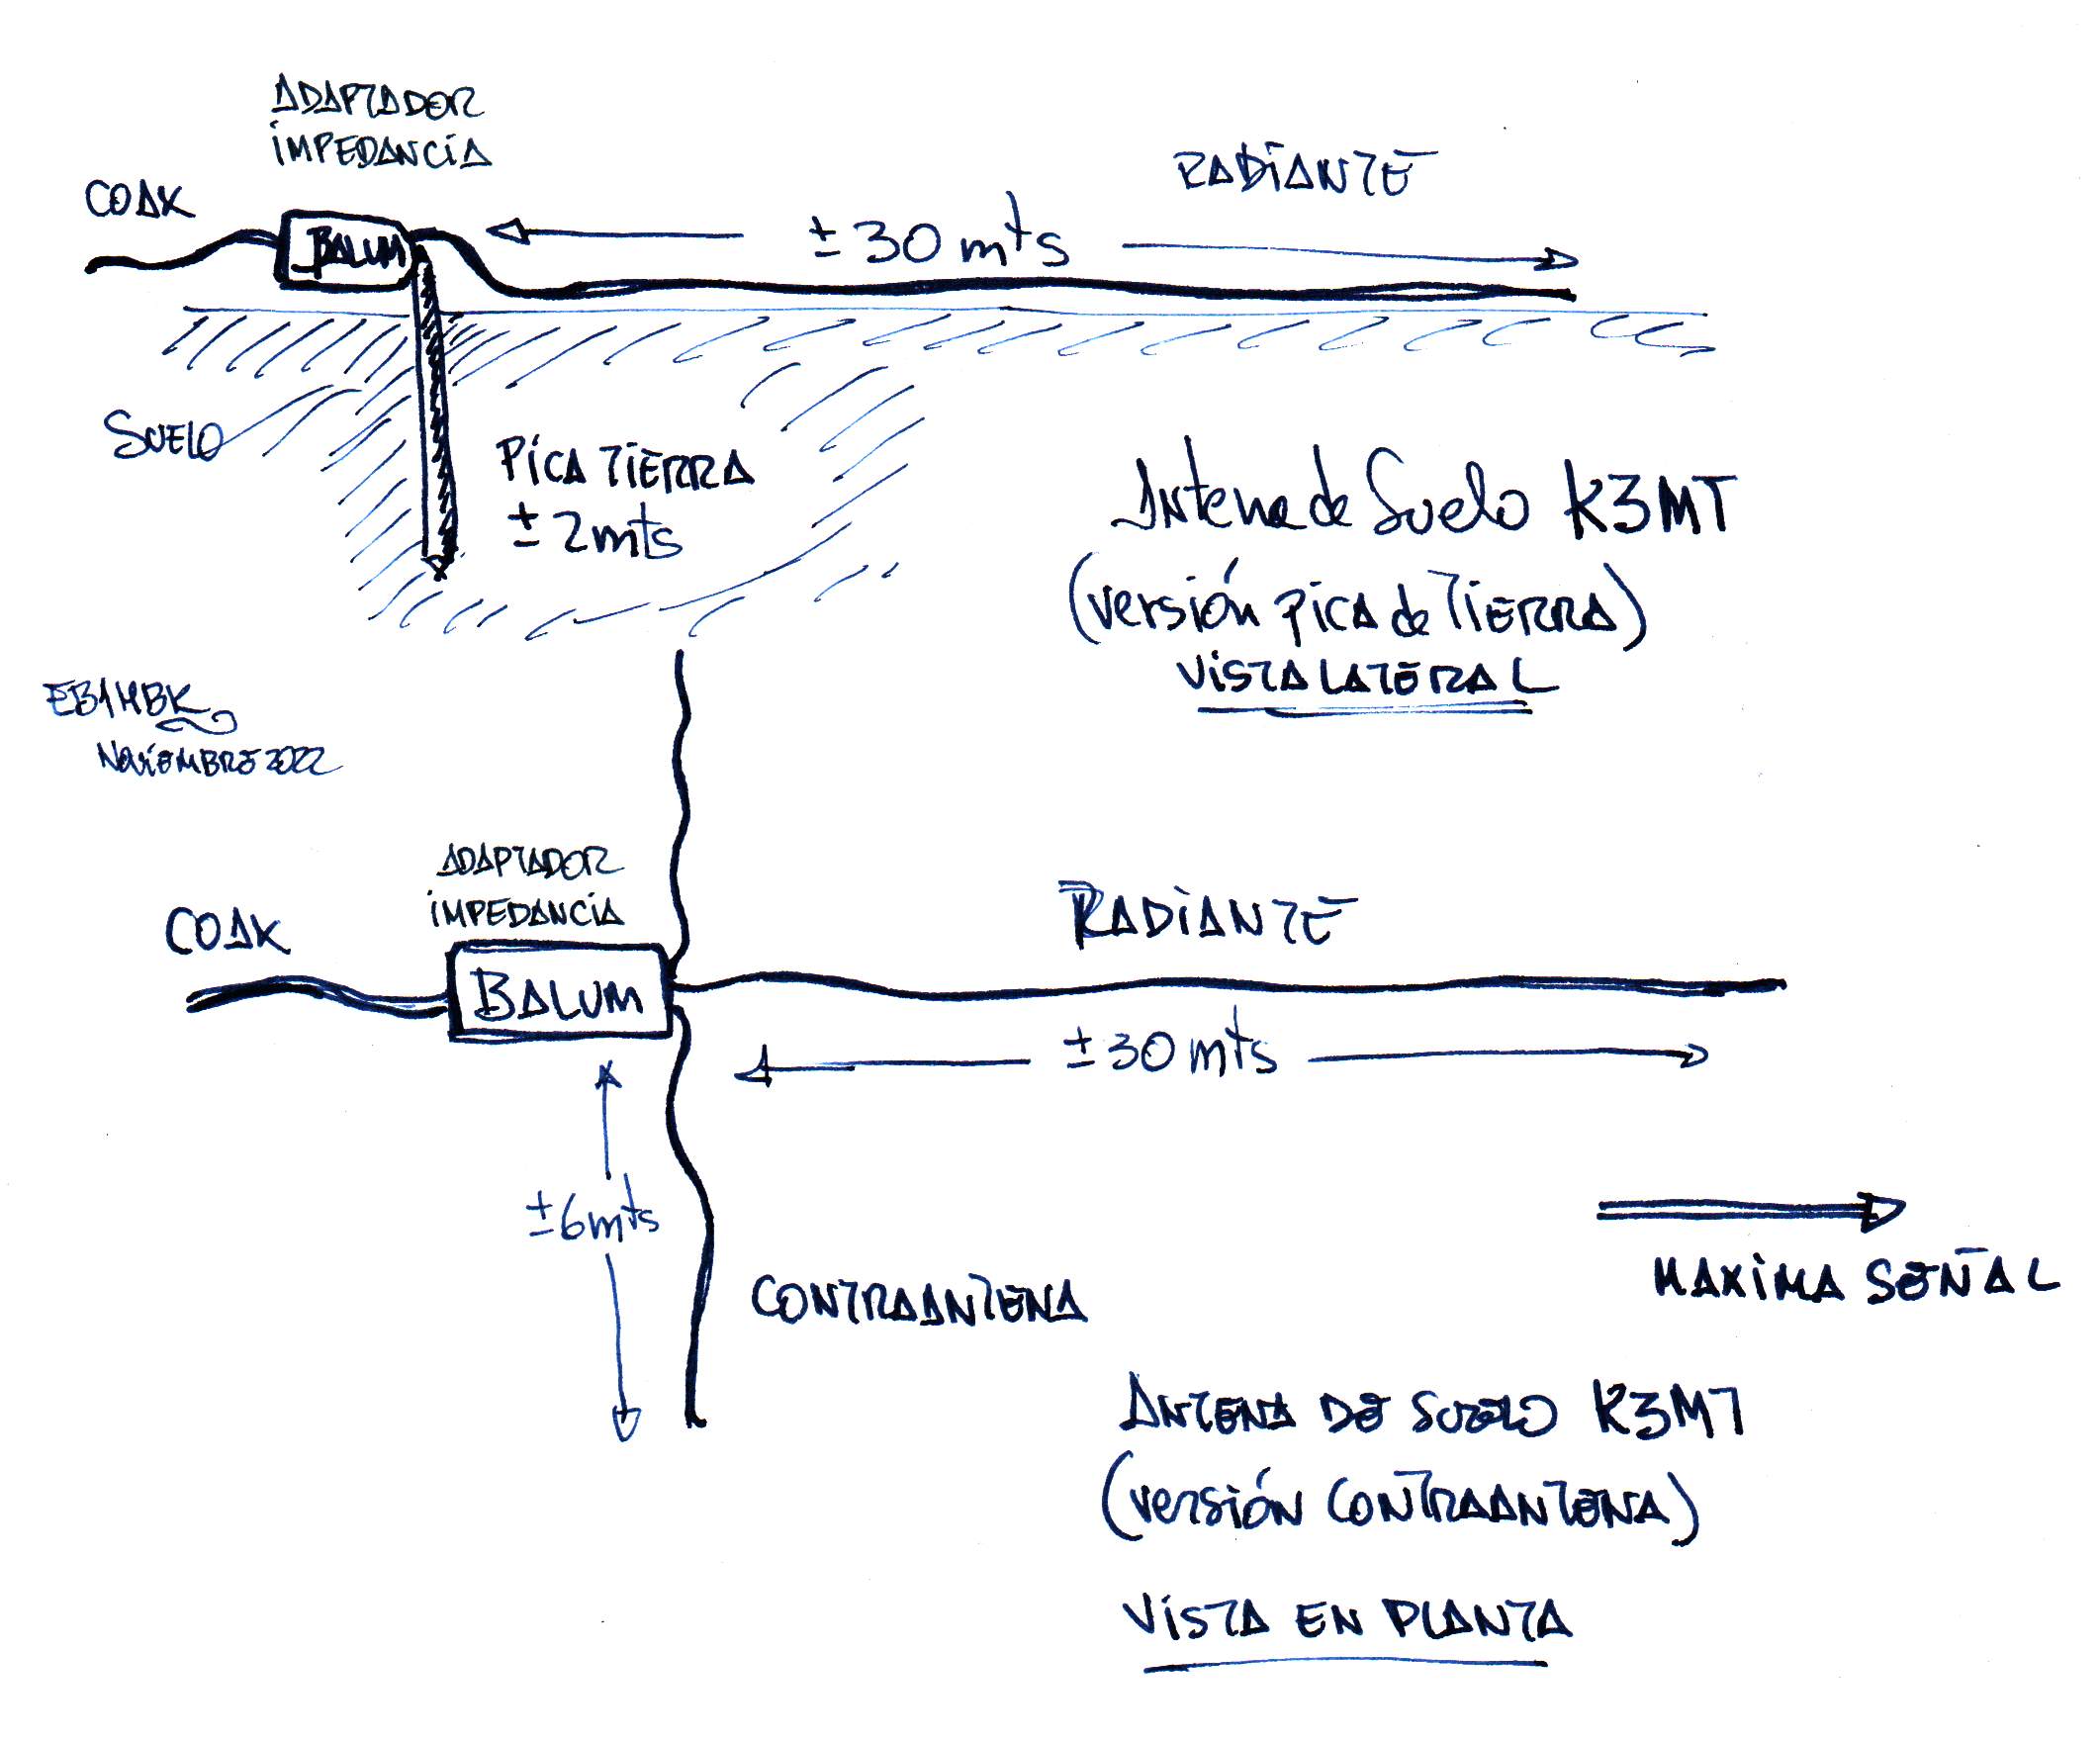 ADAPTADOR
IMPEDANCIA
COAX
BALUM
RADIANTE
± 30 mts
SUELO
PICA TIERRA
± 2 mts
Antena de Suelo K3MT
(versión pica de TIERRA)
VISTA LATERAL
EB1HBK
NOVIEMBRE 2022
ADAPTADOR
IMPEDANCIA
COAX
BALUM
RADIANTE
± 30 mts
± 6 mts
CONTRAANTENA
MAXIMA SEÑAL
ANTENA DE SUELO K3MT
(versión CONTRAANTENA)
VISTA EN PLANTA